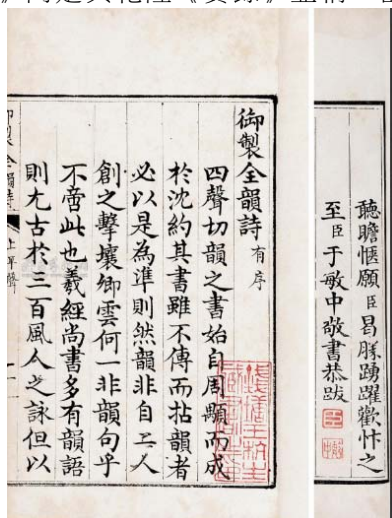 聽瞻愜願臣昌勝踴躍歡忭之
至臣于敏中敬書恭跋
御製全韻詩 有序
四聲切韻之書始自周顒而成
於沈約其書雖不傳而拈韻者
必以是為準則然韻非自工人
創之擊壤卿雲何一非韻句乎
不啻此也羲經尚書多有韻語
則尢古於三百風人之詠但以
御製全韻詩 上平聲